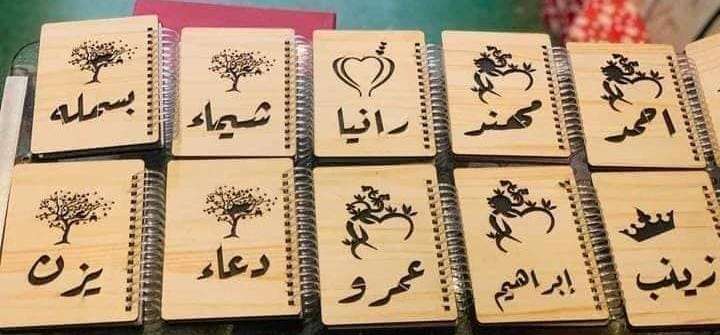 بسمله
شيماء
رانيا
مهند
احمد
يزن
دعاء
عمرو
إبراهيم
زينب